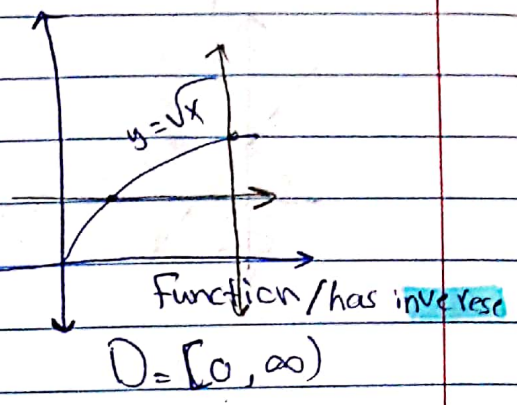 y=√x
Function/has inverese
D=[0,∞)